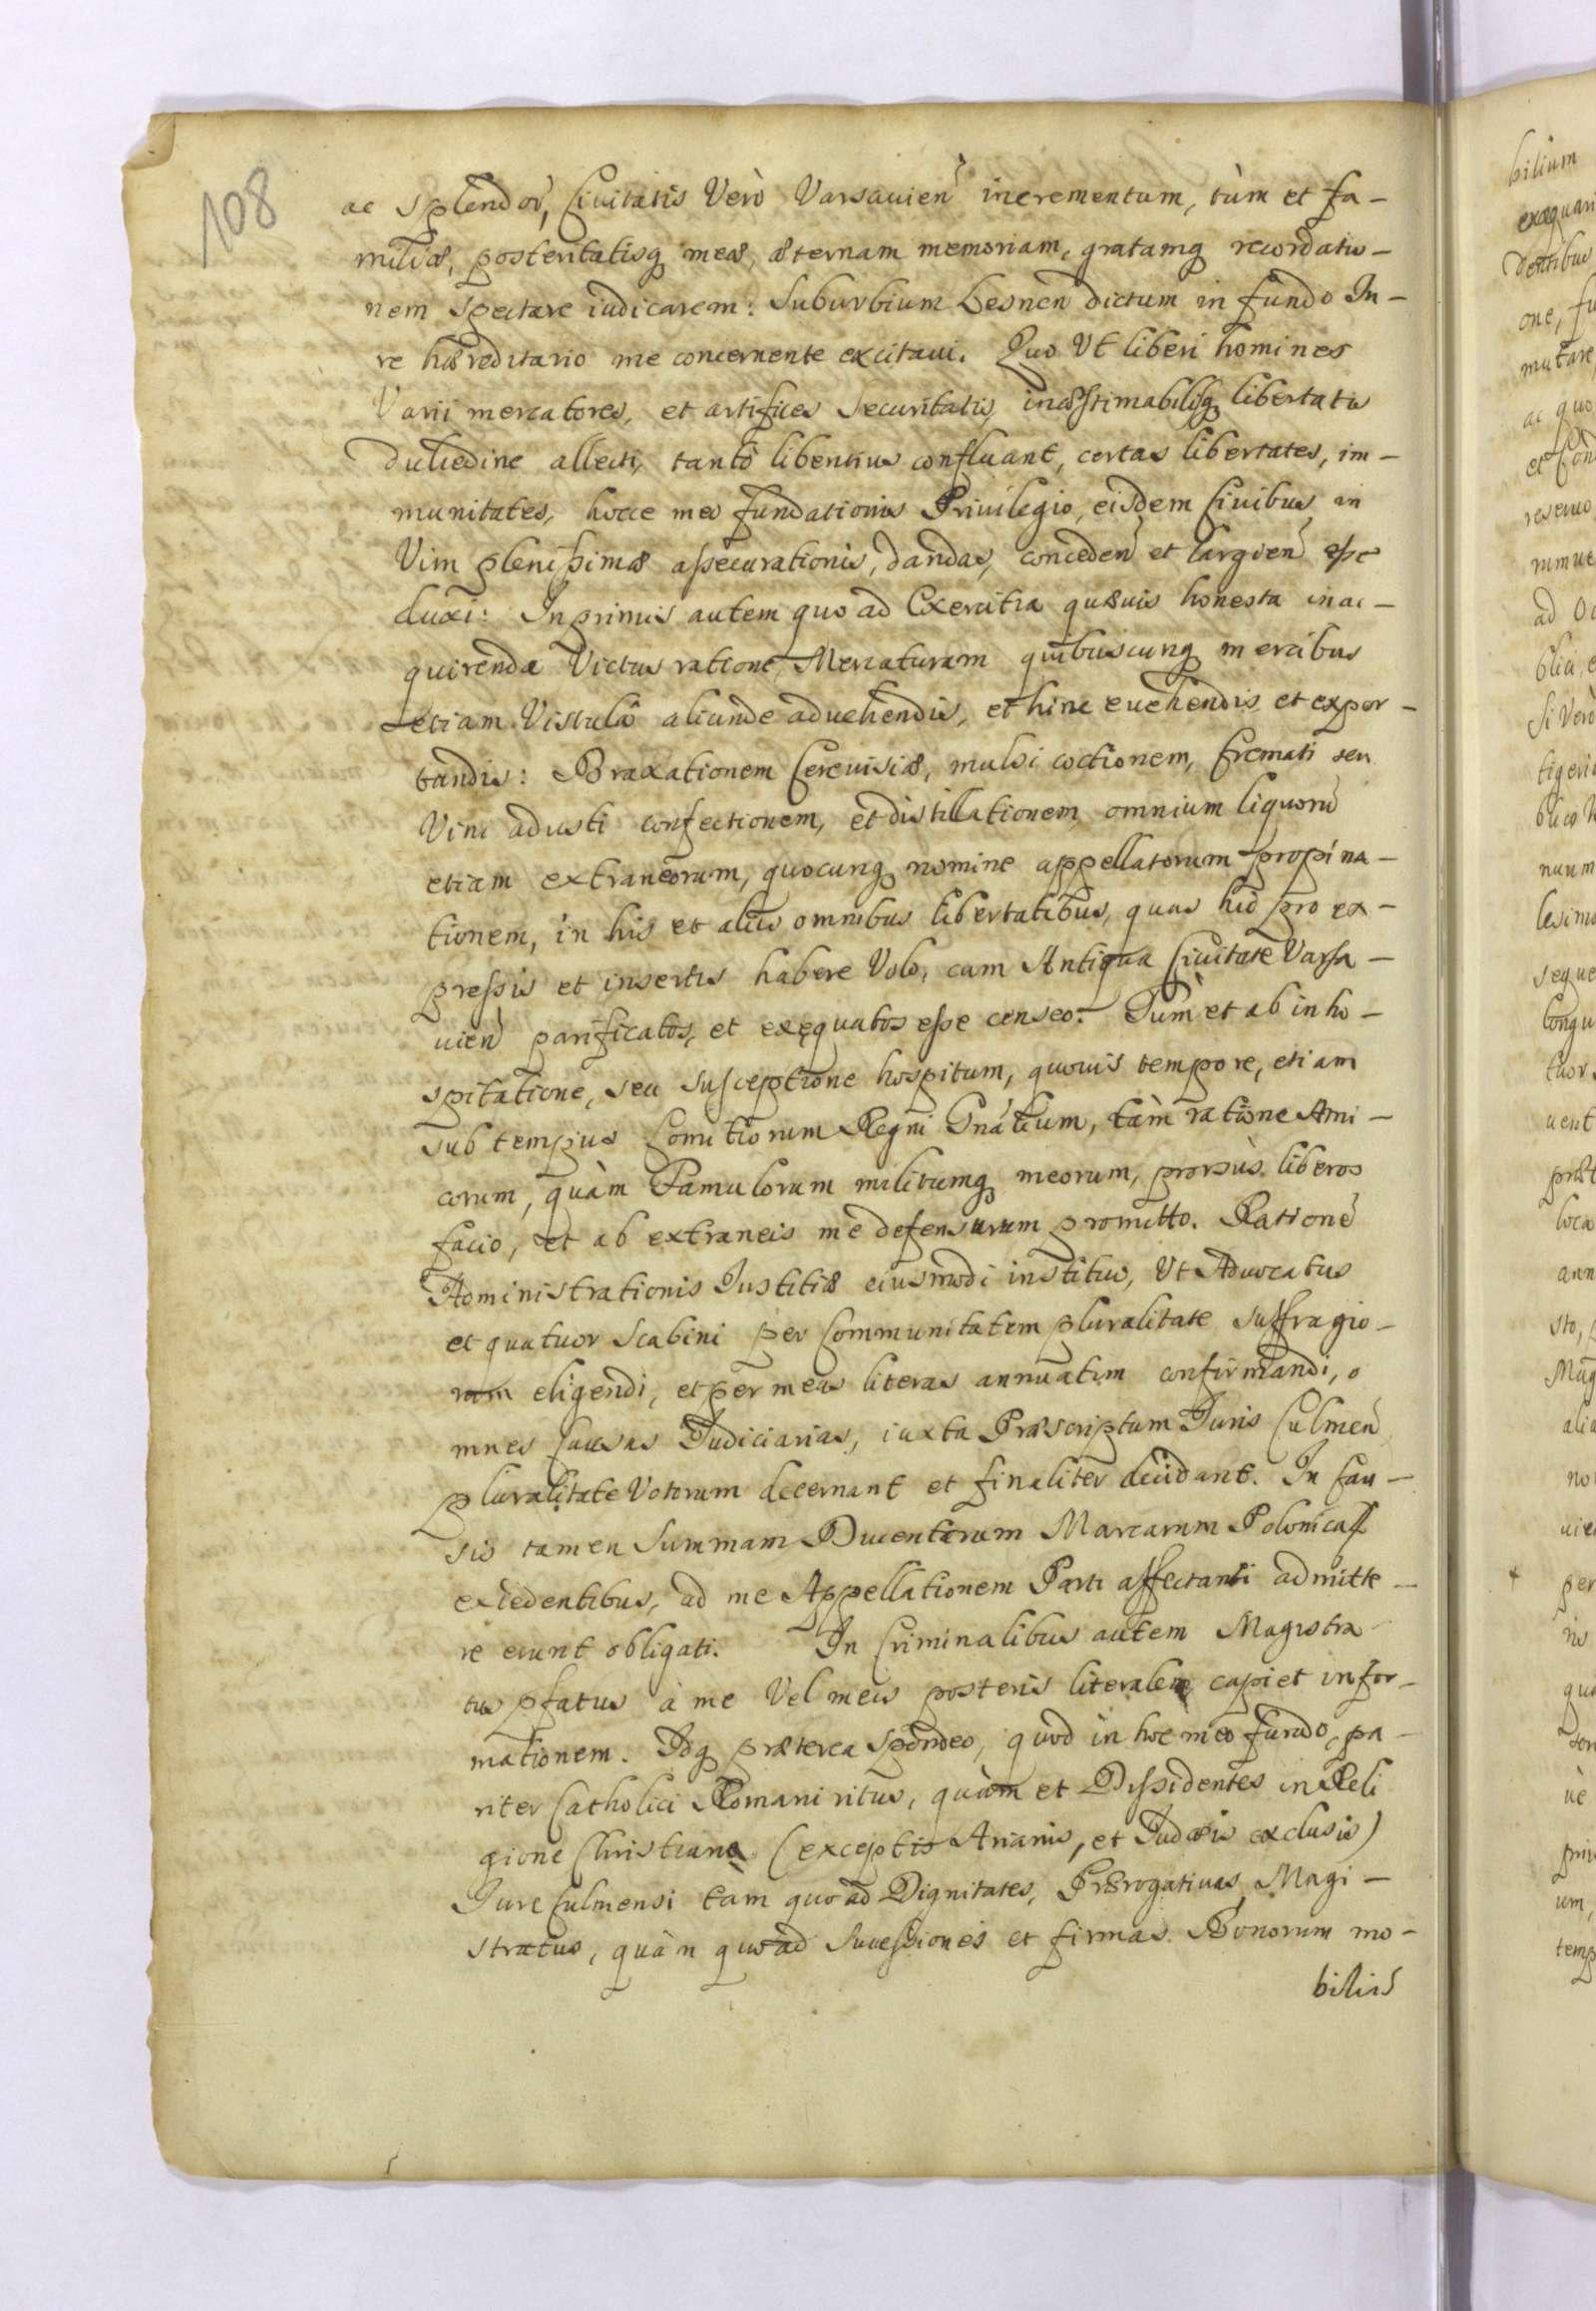 108
ac splendor, Ciuitatis Verò Varsauien̄ incrementum, tùm et fa-
miliæ, posteritatisq meæ, æternam memoriam, gratamq recordatio-
nem spectare iudicarem: Suburbium Lesnen̄ dictum in fundo Iu-
re hæreditario me concernente excitaui. Quo Ut liberi homines
Varii mercatores, et artifices securitatis, inæstimabilisq libertatis
dulcedine allecti, tantò libentius confluant, certas libertates, im-
munitates, hocce meo fundationis Priuilegio, eisdem Ciuibus in
Vim plenissimæ assecurationis, dandas, conceden̄ et largien̄ esse
duxi: Inprimis autem quo ad Exercitia quæuis honesta in ac-
quirenda Victus ratione, Mercaturam quibuscunq mercibus
etiam Vistulâ aliunde aduehendis, et hinc euehendis et expor-
tandis: Braxationem Cereuisiæ, mulsi coctionem, Cremati seu
Vini adusti confectionem, et distillationem omnium liquorū
etiam extraneorum, quocunq nomine appellatorum propina-
tionem, in his et aliis omnibus libertatibus, quas hic pro ex-
pressis et insertis habere Volo, cum Antiqua Ciuitate Varsa-
uien̄ parificatos, et exęquatos esse censeo. Tùm et ab inho-
spitatione, seu susceptione hospitum, quouis tempore, etiam
sub tempus Comitiorum Regni Gnālium, tàm ratione Ami-
corum, quàm Famulorum militumq meorum, prorsùs liberos
facio, et ab extraneis me defensurum promitto. Rationē
Administrationis Iustitiæ eiusmodi instituo, Ut Aduocatus
et quatuor Scabini per Communitatem pluralitate suffragio-
rum eligendi, et per meas literas annuatim confirmandi, o
mnes Causas Iudiciarias, iuxta Præscriptum Iuris Culmen̄
pluralitate Votorum decernant et finaliter decidant. In Cau-
sis tamen Summam Ducentarum Marcarum Polonical
excedentibus, ad me Appellationem Parti affectanti admitte-
re erunt obligati. In Criminalibus autem Magistra
tus pfatus à me Vel meis posteris literalem capiet infor-
mationem. Idq præterea Spondeo, quod in hoc meo fundo, pa-
riter Catholici Romani ritus, quàm et Dissidentes in Reli
gione Christiana (exceptis Arianis, et Iudæis exclusis)
Iure Culmensi tàm quo ad Dignitates, Prærogatiuas Magi-
stratus, quàm quo ad Successiones et firmas Bonorum mo-
biliū
bilium
exæquan
dentibus
one, fu
mutare
ac quo
et
reseruo
ad
Si Verò
tigeri
nuum
lesimo
seque
longu
tuor
uent
præt
loca
ann
sto,
Mag
alia
no
uie
per
ris
qua
uè
um,
temp